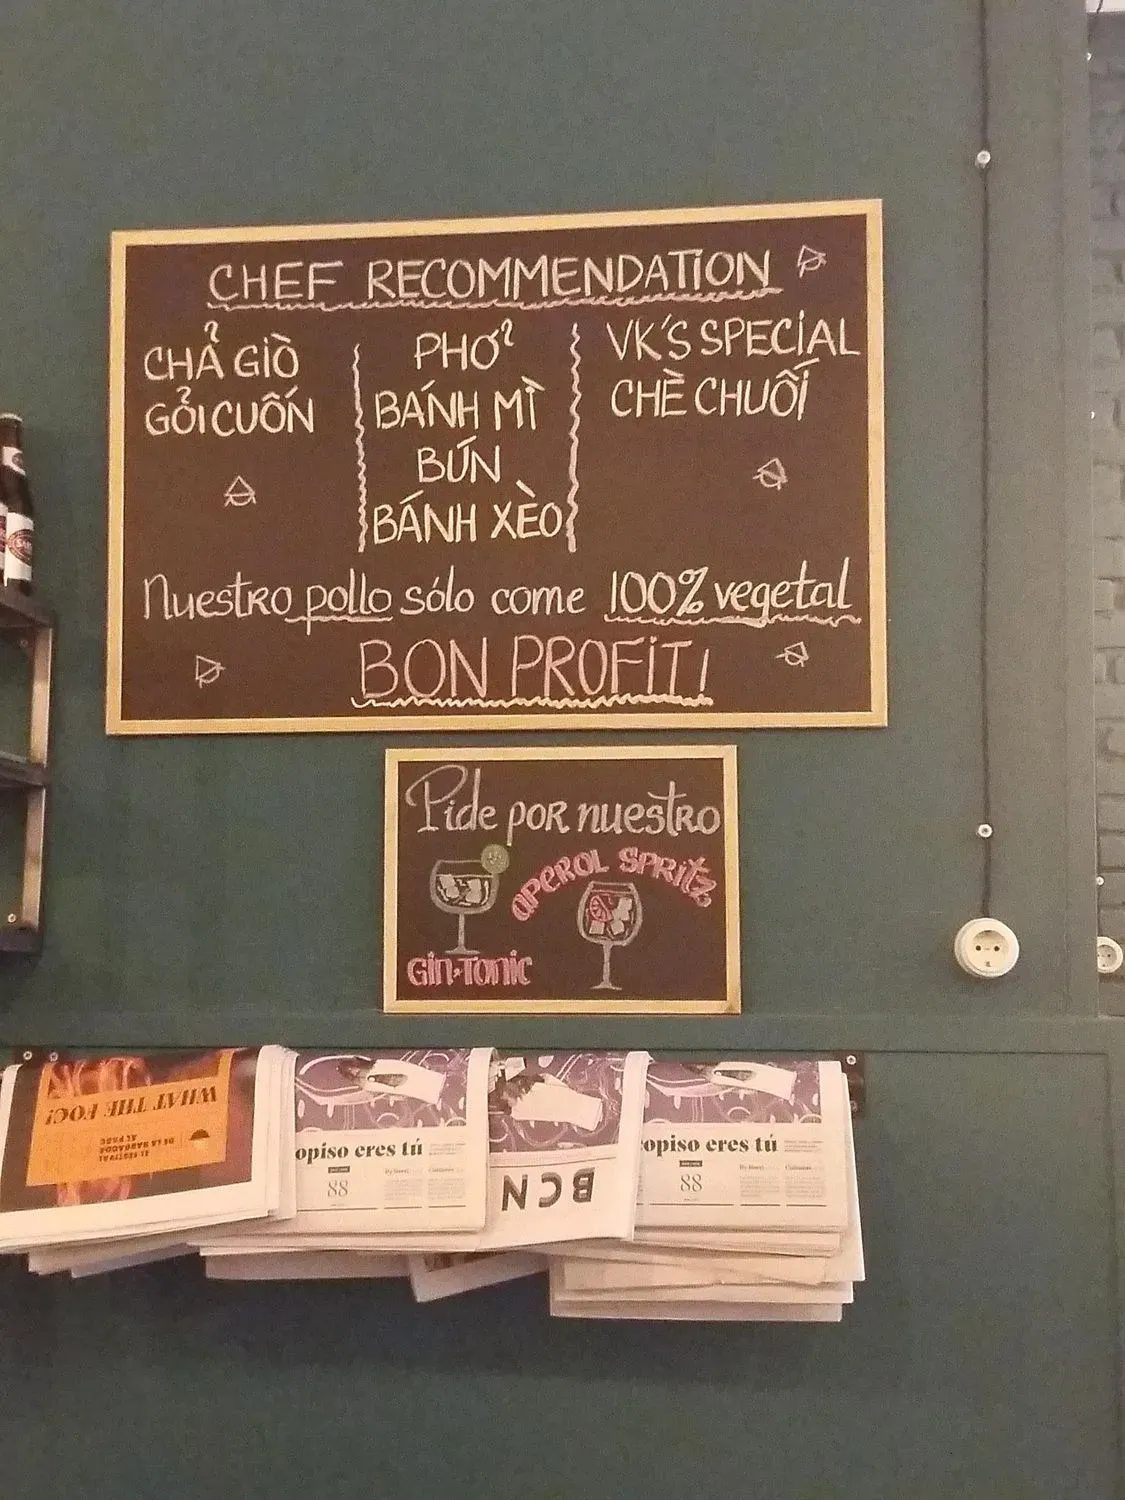 CHEF RECOMMENDATION
CHẢ GIÒ
GỎI CUỐN
PHỞ
BÁNH MÌ
BÚN
BÁNH XÈO
VK'S SPECIAL
CHÈ CHUỐI
Nuestro pollo sólo come 100% vegetal
BON PROFIT!
Pide por nuestro
APEROL SPRITZ
GIN-TONIC
WHAT THE FOC!
EL FESTIVAL
DE LA BARBACOA
AL PARC
opiso eres tú
88
BCN
copiso eres tú
88